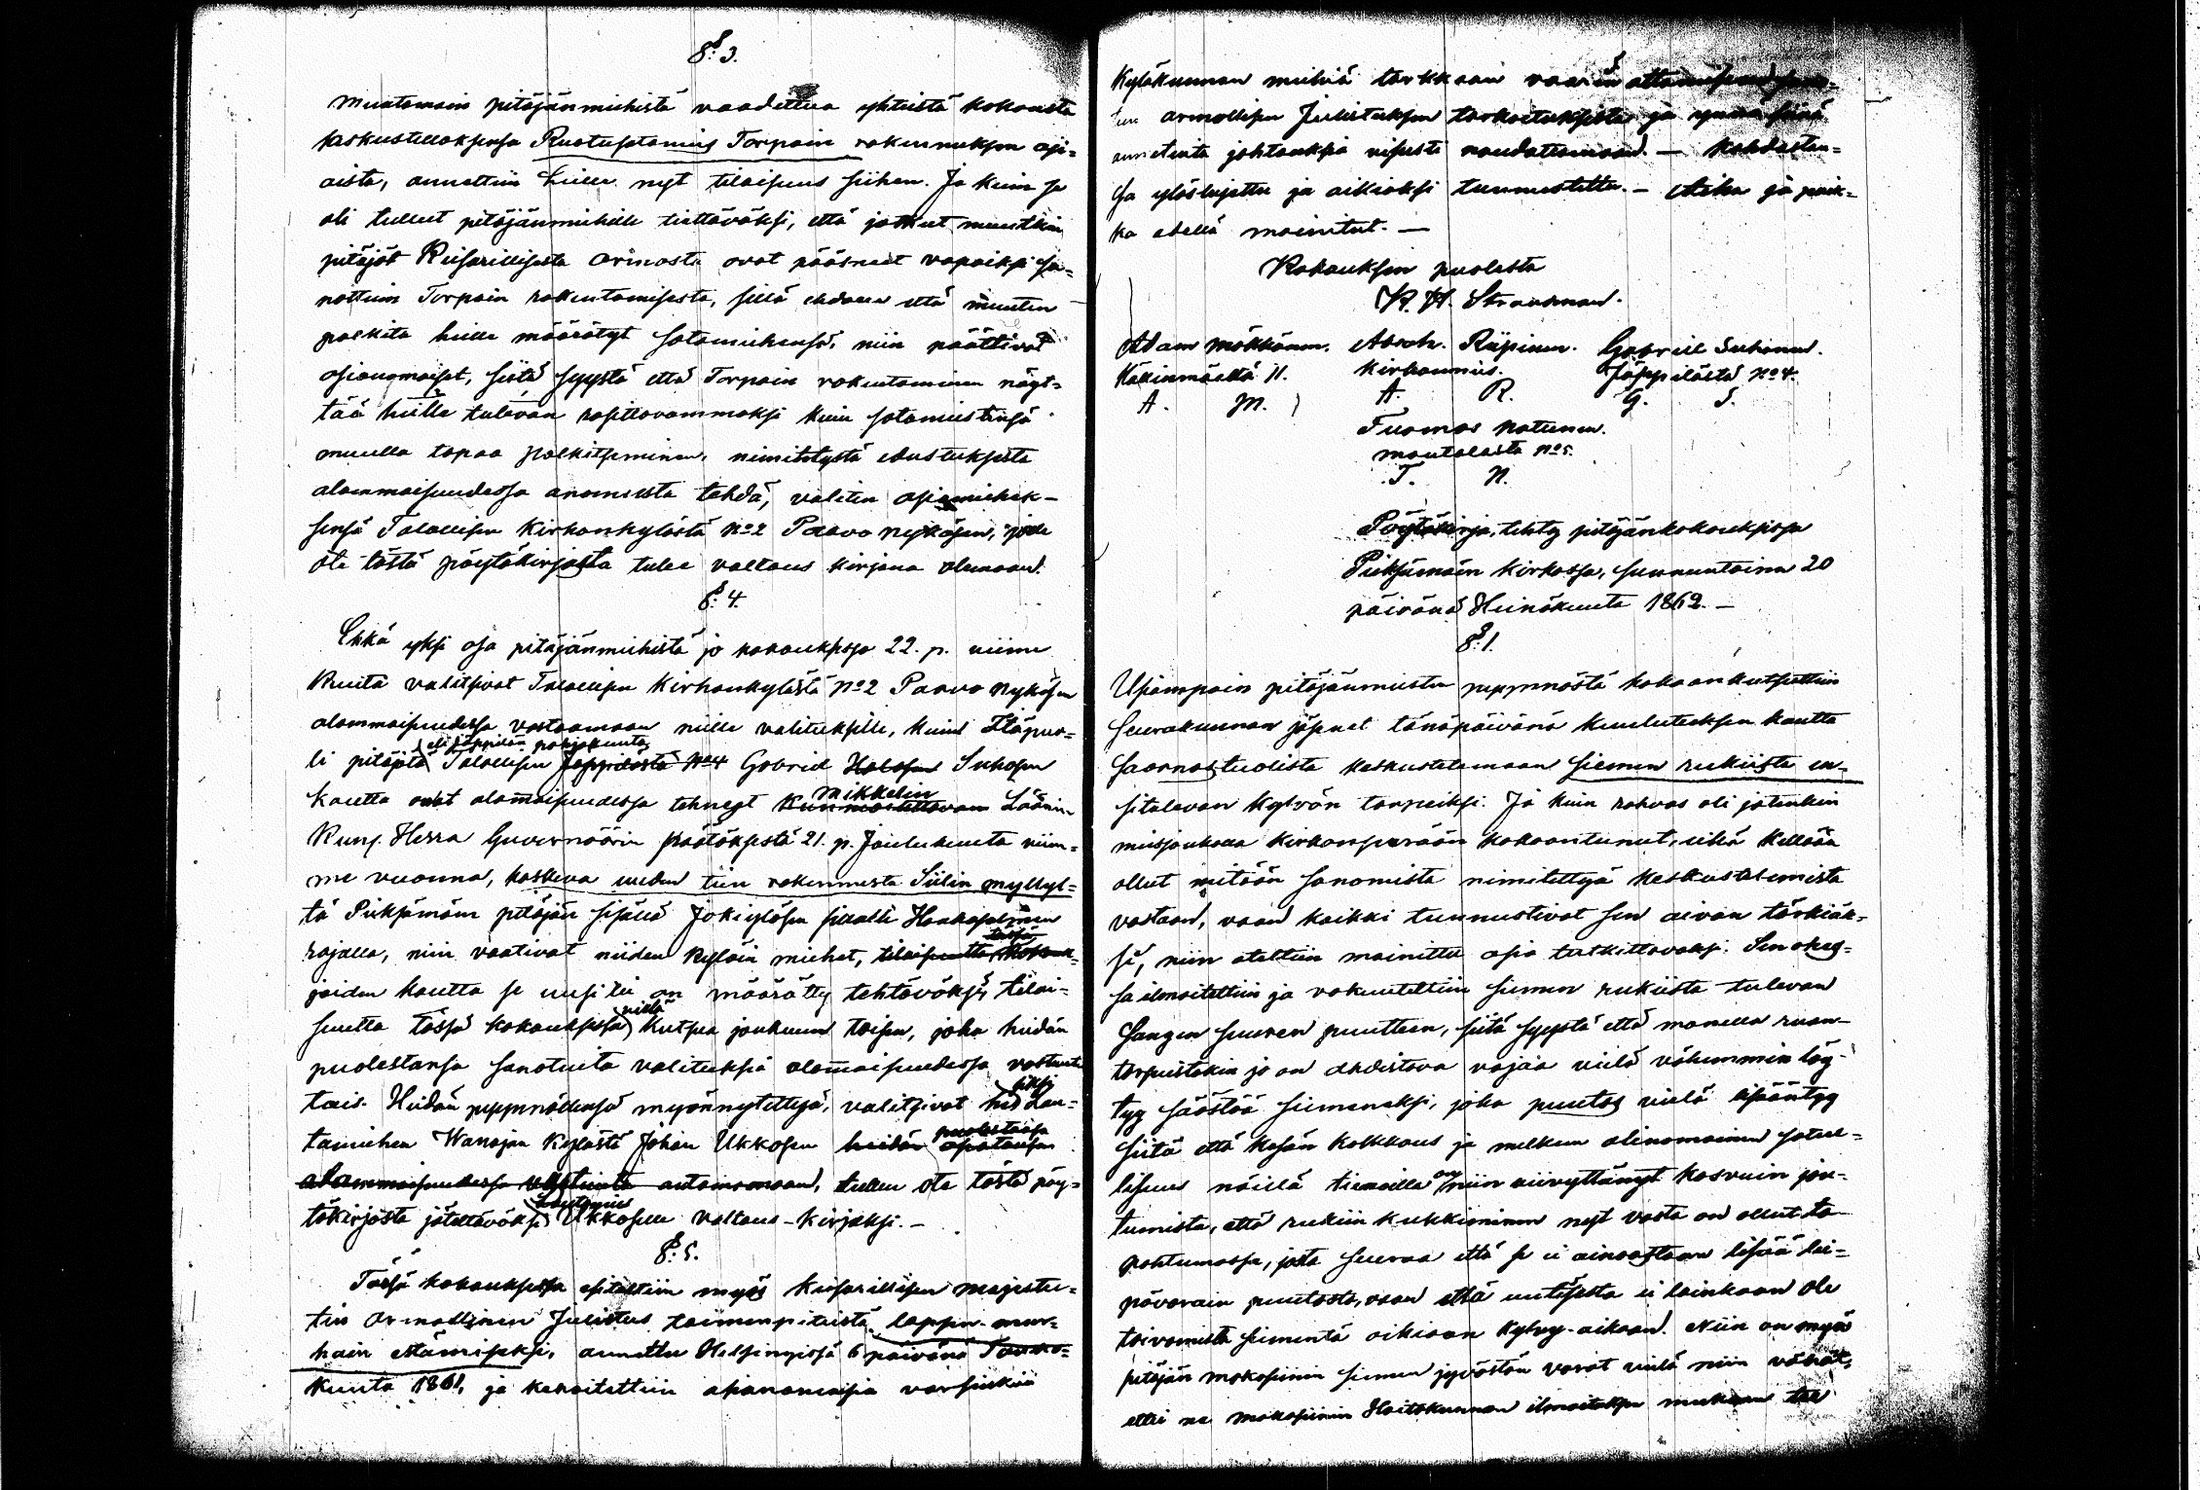 §: 3.
muutamain pitäjänmiehistä vaadittua yhteistä kokousta
keskustellaksensa Ruotusotamies Torpain rakennuksen asi-
oista, annettiin heille nyt tilaisuus siihen. Ja kuin se
oli tullut pitäjänmiehille tiettäväksi, että jotkut muutkin
pitäjät Keisarillisesta armosta ovat päässeet vapaiksi sa-
nottuin Torpain rakentamisesta, sillä ehdolla että muuten
palkita heille määrätyt sotamiehensä, niin päättivät
asianomaiset, siitä syystä että Torpain rakentaminen näyt-
tää heille tulevan rasittavammaksi kuin sotamiestensä
muulla tapaa palkitseminen, nimitetystä edustuksesta
alammaisuudessa anomusta tehdä, valiten asiamiehek-
sensä Talollisen Kirkonkylästä No 2 Paavo Nykäsen, jolle
ote tästä pöytäkirjasta tulee valtaus kirjana olemaan.
§: 4.
Ehkä yksi osa pitäjänmiehistä jo kokouksessa 22. p. viime
Kuuta valitsivat Talollisen Kirkonkylästä No 2 Paavo Nykäsen
alammaisuudessa vastaamaan niille valituksille, kuin Itäpuo-
eli Jäppilän pohjakuntaa
li pitäjätä Talollisen Jäppilästä No 4 Gabriel Halosen Suhosen
Mikkelin
kautta ovat alamaisuudessa tehneet Läänin
Kuns. Herra Guvernöörin päätöksestä 21. p. Joulukuuta viim-
me vuonna, koskeva uuden tien rakennusta Siilin myllyl-
tä Pieksämäen pitäjän sisällä Jokiylösen sillalle Haukasalmen
tässä
rajalla, niin vaativat niiden kyläin miehet, tilaisuutta kokouk-
joiden kautta se uusi tie on määrätty tehtäväksi, tilai-
vielä
suutta tässä kokouksessa kutsua joukuun toisen, joka heidän
puolestansa sanotuita valituksia alamaisuudessa vastusta
siksi
tais. Heidän pyynnöllensä myönnytettyä, valitsivat he Lau-
puolestansa
tamiehen Wanajan Kylästä Johan Ukkosen heidän asiatansa
alammaisuudessa vastinta antamaan, tullen ote tästä pöy-
Lautamies
täkirjasta jätettäväksi Ukkoselle valtaus-kirjaksi. —
§: 5.
Tässä kokouksessa esitettiin myös Keisarillisen Majestee-
tin Armollinen Julistus toimenpiteistä lappu-mur-
hain estämiseksi, annettu Helsingissä 6 päivänä Touko-
kuuta 1861, ja kehoitettiin asianomaisia varsinkin
Kyläkunnan miehiä tarkkaan vaarin ottamisen
sen armollisen Julistuksen tarkoituksista ja
annetuita johtauksia visusti noudattamaan. — Kohdastan-
sa ylösluettu ja oikiaksi tunnustettu. — Aika ja paik-
ka edellä mainitut. —
Kokouksen puolesta
K. H. Strandman.
Adam Mökkönen. Abrah. Riipinen. Gabriel Suhonen.
11. Kirkonmies. Jäppilästä No 4.
A. M. A. R. G. S.
Tuomas Natunen.
Montolasta No 5.
T. N.
Pöytäkirja, tehty pitäjänkokouksessa
Pieksämäen Kirkossa, sunnuntaina 20
päivänä Heinäkuuta 1862. —
§: 1.
Useampain pitäjänmiesten pyynnöstä kokoankutsuttiin
seurakunnan jäsenet tänäpäivänä kuulutuksen kautta
saarnastuolista keskustelemaan siemen rukiista en-
situlevan kylvön tarpeiksi. Ja kuin rahvas oli jotenkin
miesjoukolla kirkonperään kokoontunut, eikä kellään
ollut mitään sanomista nimitettyä keskustelemista
vastaan, vaan kaikki tunnustivat sen aivan tärkiäk-
si, niin otettiin mainittu asia tutkittavaksi. Sen ohes-
sa ilmoitettiin ja vakuutettiin siemen rukiista tulevan
sangen suuren puutteen, siitä syystä että monella ruan-
tarpeistakin jo on ahdistava vajaa vielä vähemmin löy-
tyy säästöä siemeneksi, joka puutos vielä lisääntyy
siitä että kesän kolkkous ja melkein alinomainen sateel-
lisuus näillä tienoilla on niin viivyttänyt kasvuin jou-
tumista, että rukiin kukkiminen nyt vasta on ollut ta-
pahtumassa, josta seuraa että se ei ainoastaan lisää lei-
pävarain puutosta, vaan että uutisesta ei lainkaan ole
toivomista siementä oikiaan kylvy-aikaan. Niin on myös
pitäjän makasiinin siemen jyvästön varat vielä niin vähät,
ettei ne makasiinin Hoitokunnan ilmoituksen mukaan tule